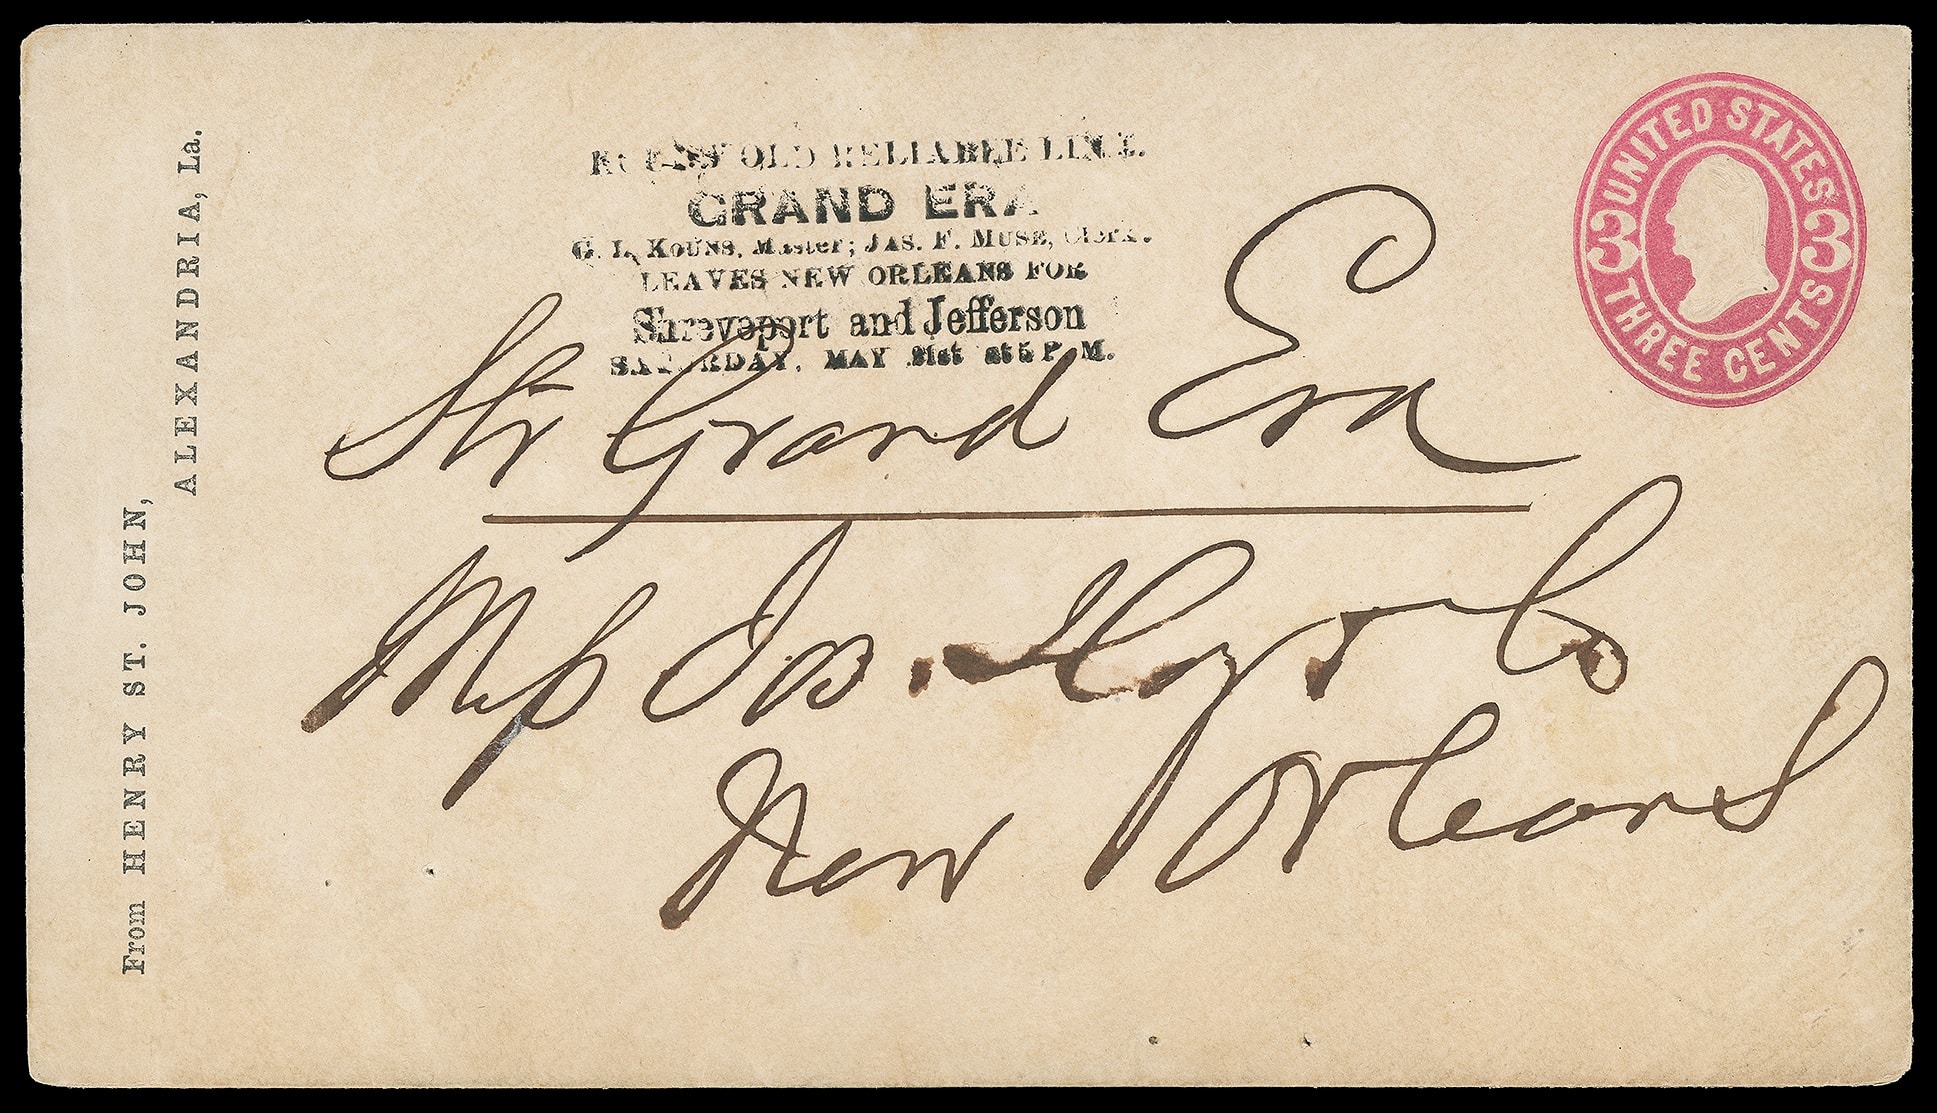 From HENRY ST. JOHN,
ALEXANDRIA, La.
KOUNS' OLD RELIABLE LINE.
GRAND ERA
G. L. KOUNS, Master; JAS. F. MUSE, Clerk.
LEAVES NEW ORLEANS FOR
Shreveport and Jefferson
SATURDAY, MAY 21st at 5 P. M.
UNITED STATES
3 3
THREE CENTS
Str Grand Era
Jos. Hoyt Co
New Orleans